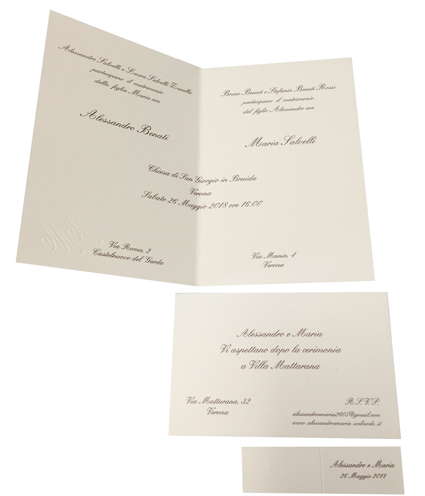 Alessandro Salvelli e Laura Salvelli
partecipano il matrimonio
della figlia Maria con
Alessandro Benati
Bruno Benati e Stefania Benati Rossi
partecipano il matrimonio
del figlio Alessandro con
Maria Salvelli
Chiesa di San Giorgio in Braida
Verona
Sabato 26 Maggio 2018 ore 16.00
Via Roma, 2
Castelnuovo del Garda
Via Manin, 4
Verona
Alessandro e Maria
Vi aspettano dopo la cerimonia
a Villa Mattarana
Via Mattarana, 32
Verona
R.S.V.P.
Alessandro e Maria
26 Maggio 2018